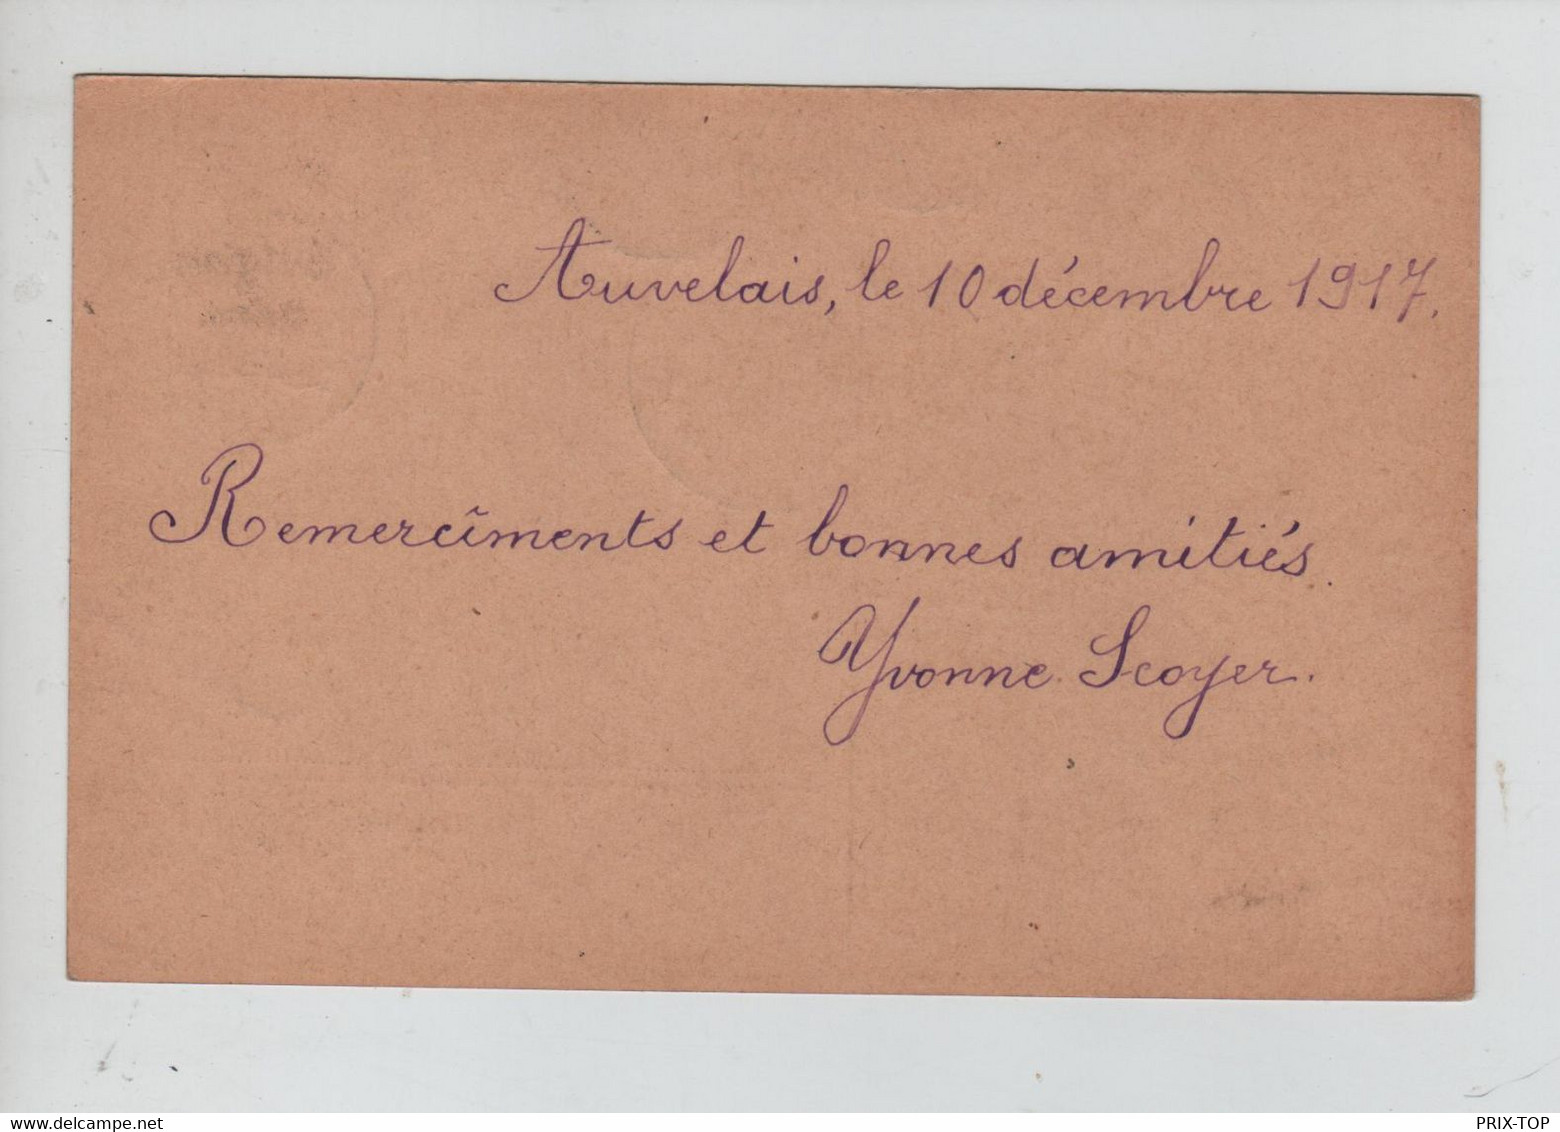 Auvelais, le 10 décembre 1917.
Remercîments et bonnes amitiés.
Yvonne Scoyer.
PRIX-TOP